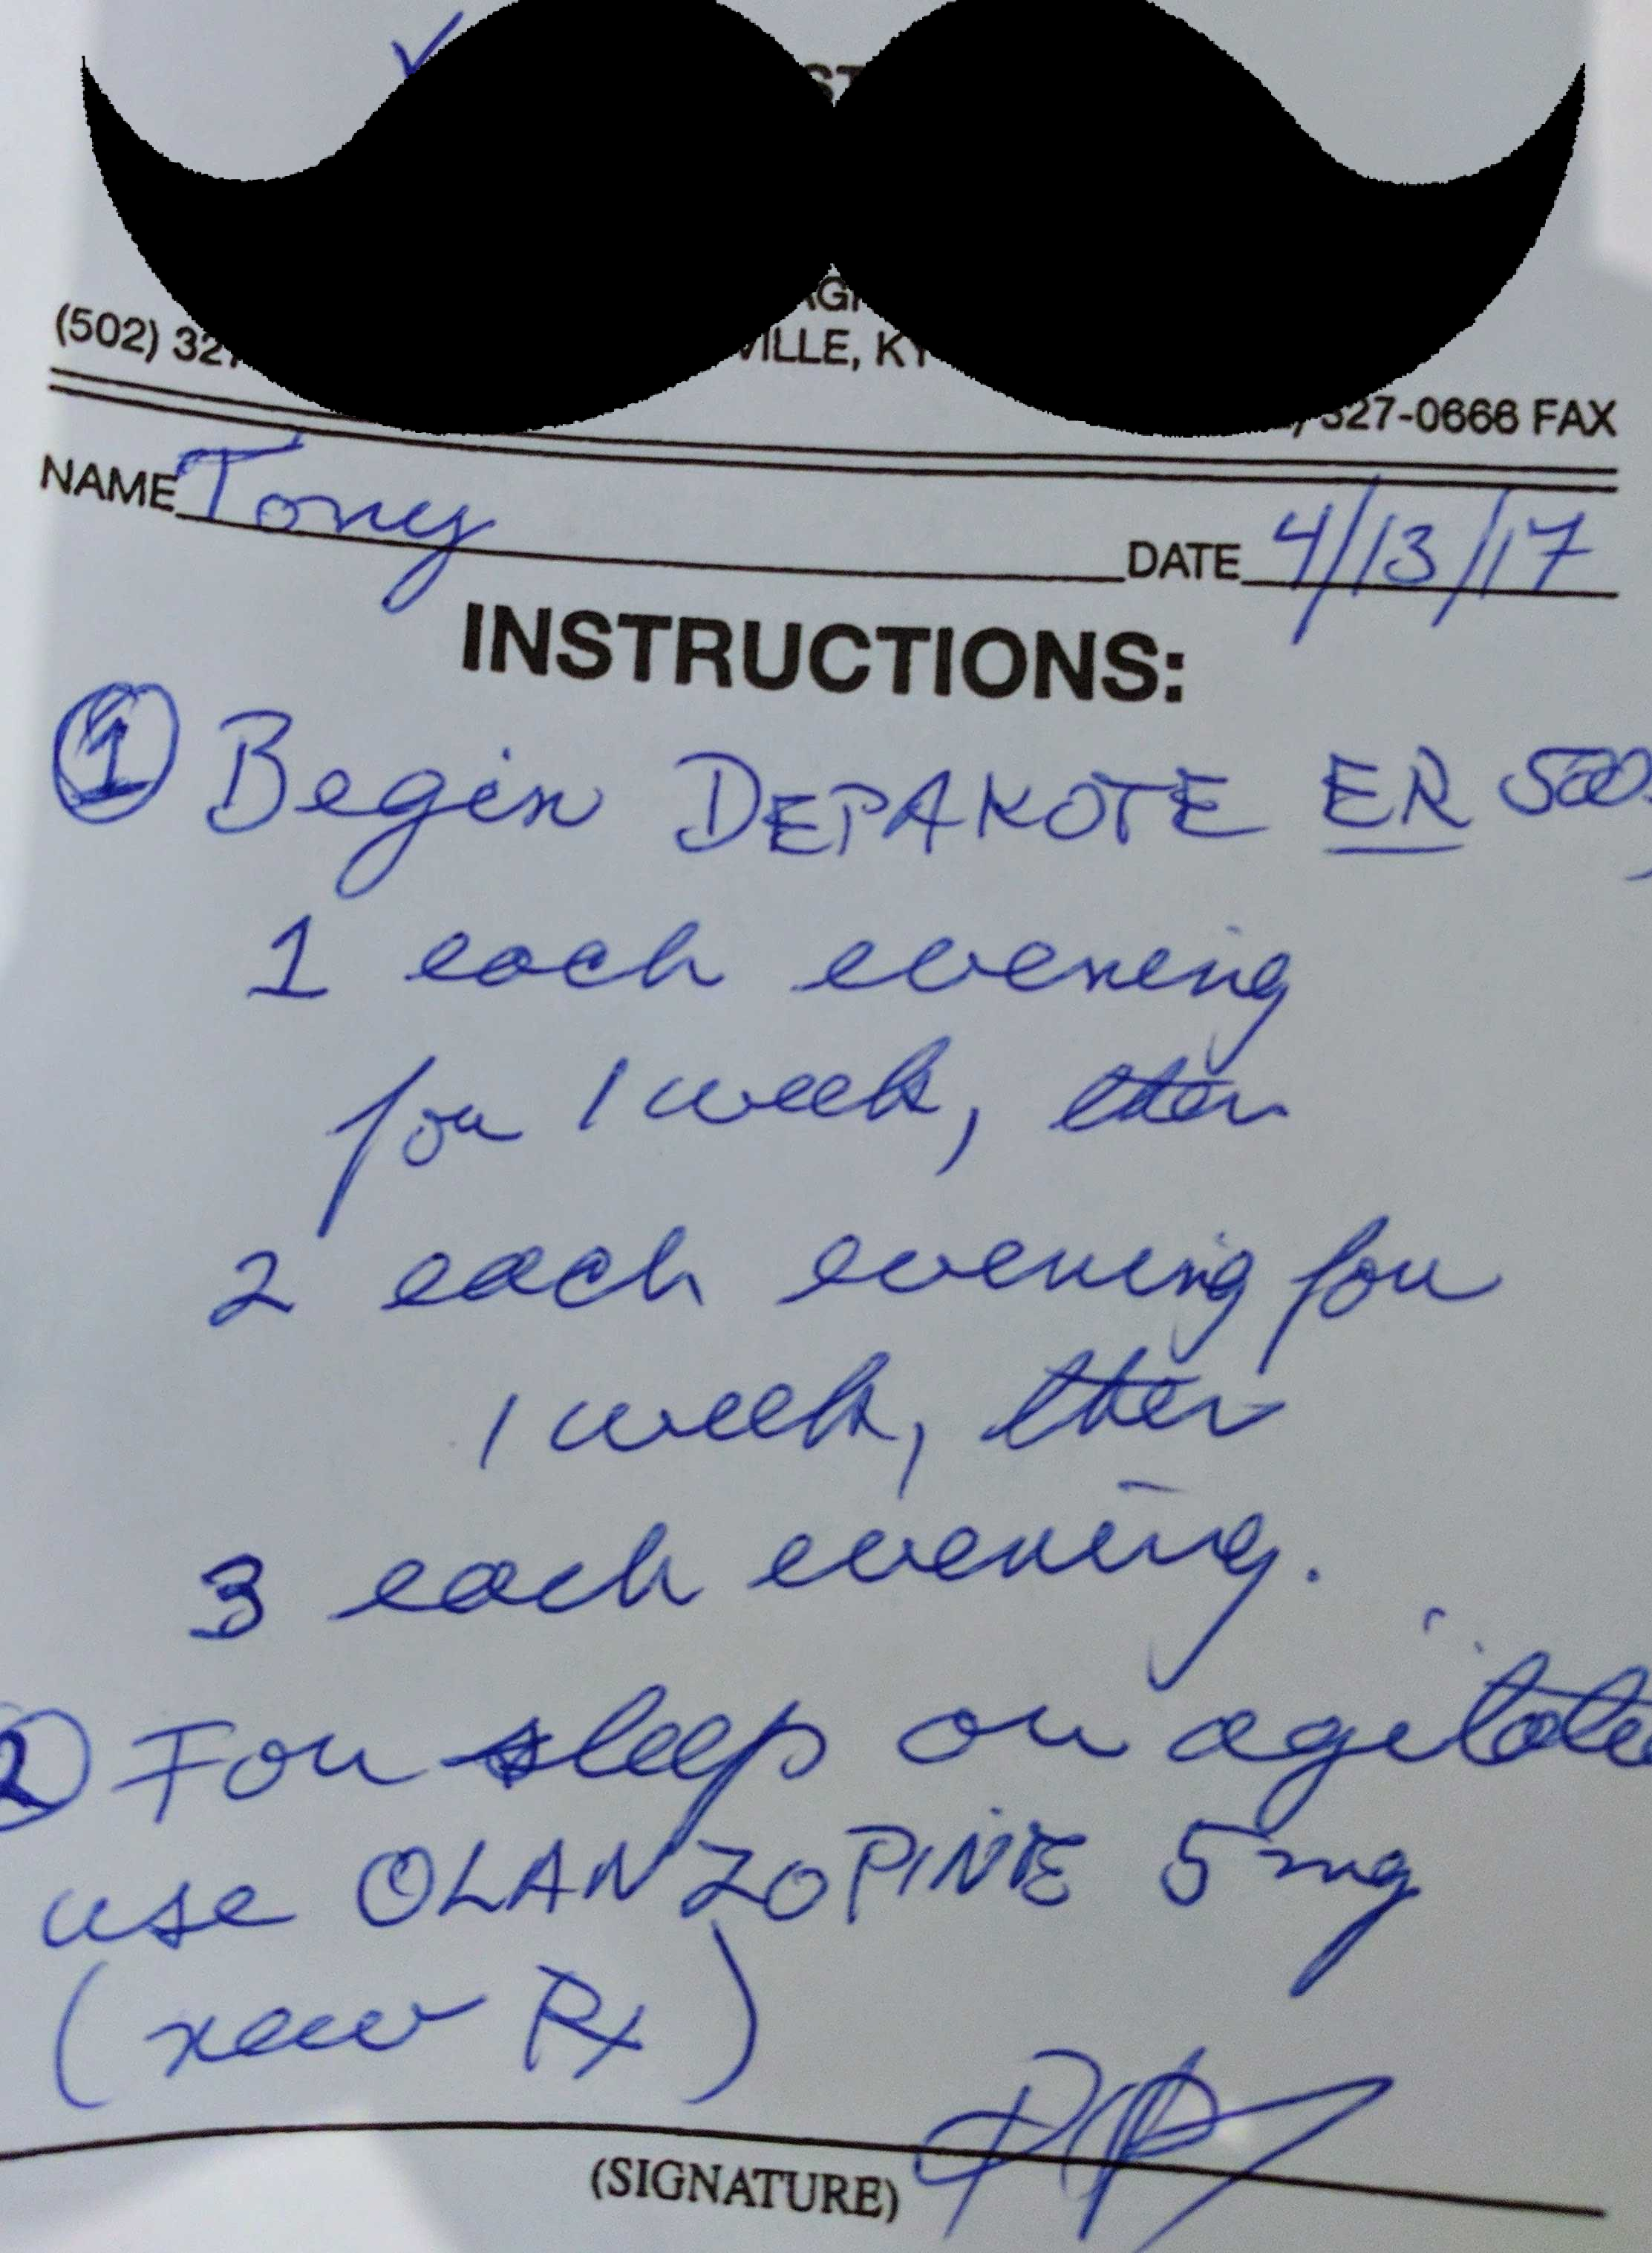 (502) 32
VILLE, KY
327-0666 FAX
NAME Tony DATE 4/13/17
INSTRUCTIONS:
1 Begin DEPAKOTE ER 500
1 each evening
for 1 week, then
2 each evening for
1 week, then
3 each evening.
2 For sleep or agitatio
use OLANZOPINE 5mg
(new Rx)
(SIGNATURE)